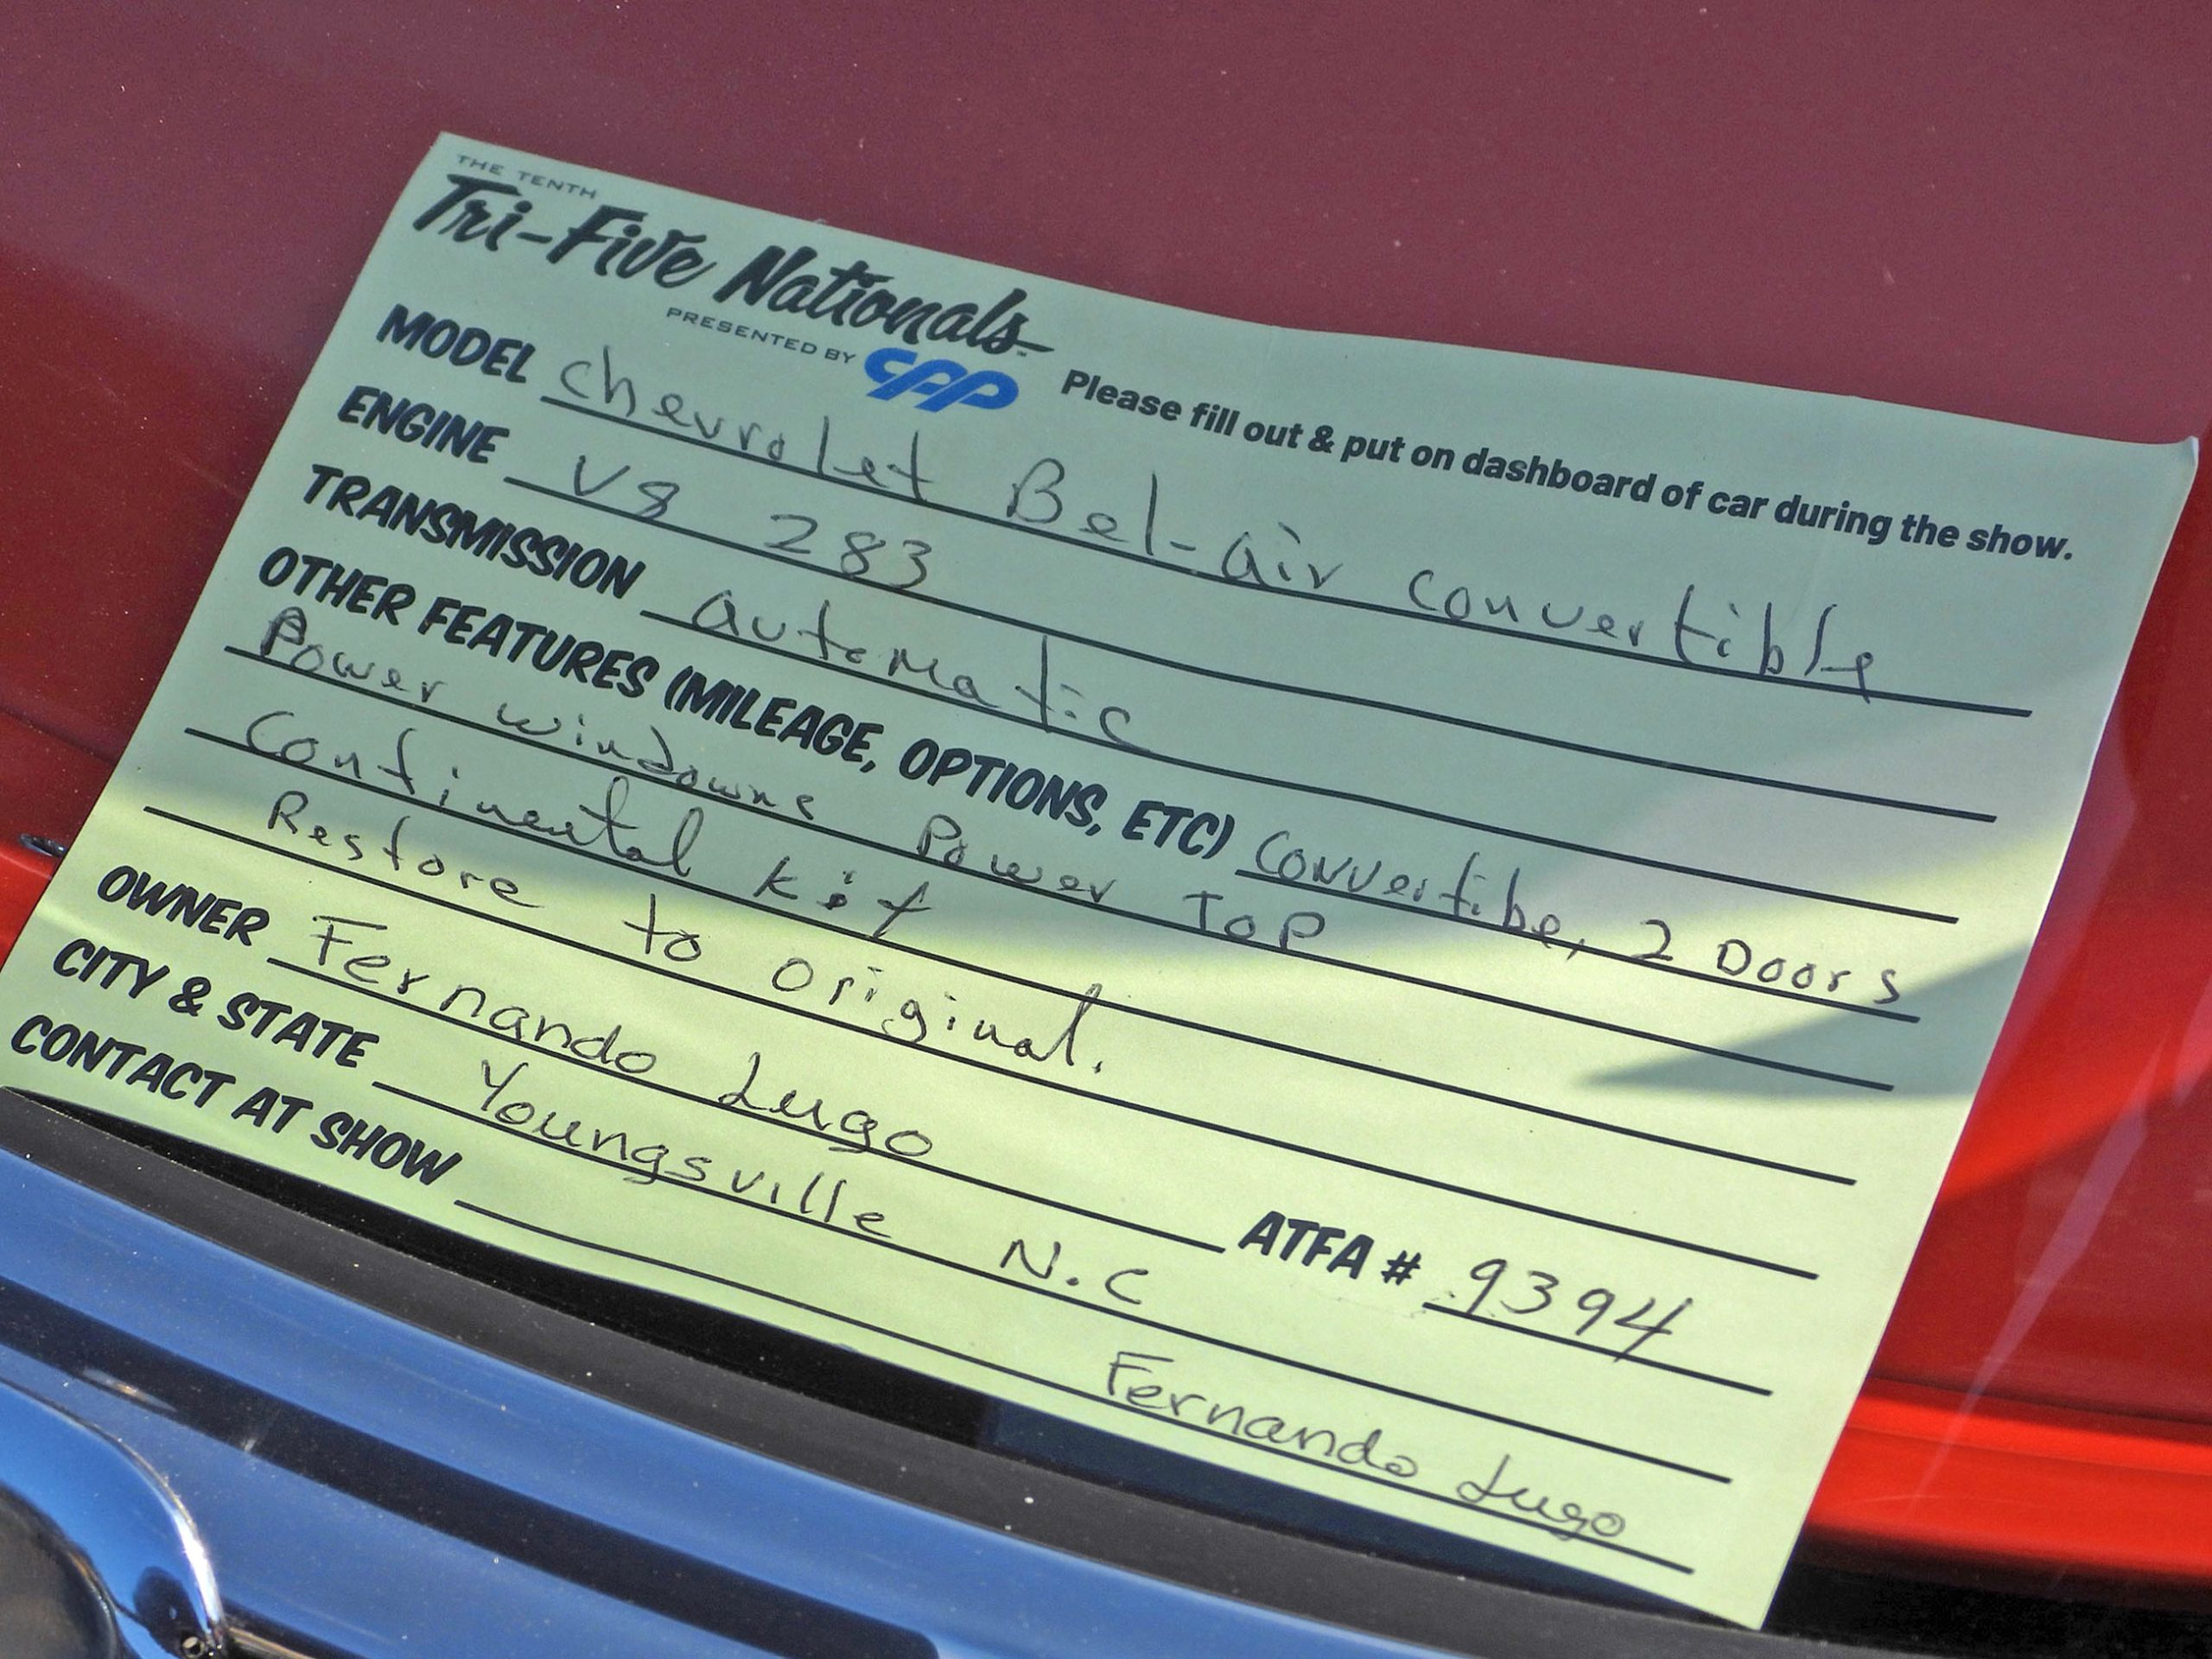 THE TENTH
Tri-Five Nationals
PRESENTED BY CPP
Please fill out & put on dashboard of car during the show.
MODEL Chevrolet Bel-air convertible
ENGINE V8 283
TRANSMISSION automatic
OTHER FEATURES (MILEAGE, OPTIONS, ETC) Convertibe, 2 Doors
Power windowns Power ToP
Continental kit
Restore to original.
OWNER Fernando Lugo ATFA # 9394
CITY & STATE Youngsville N.C
CONTACT AT SHOW Fernando Lugo